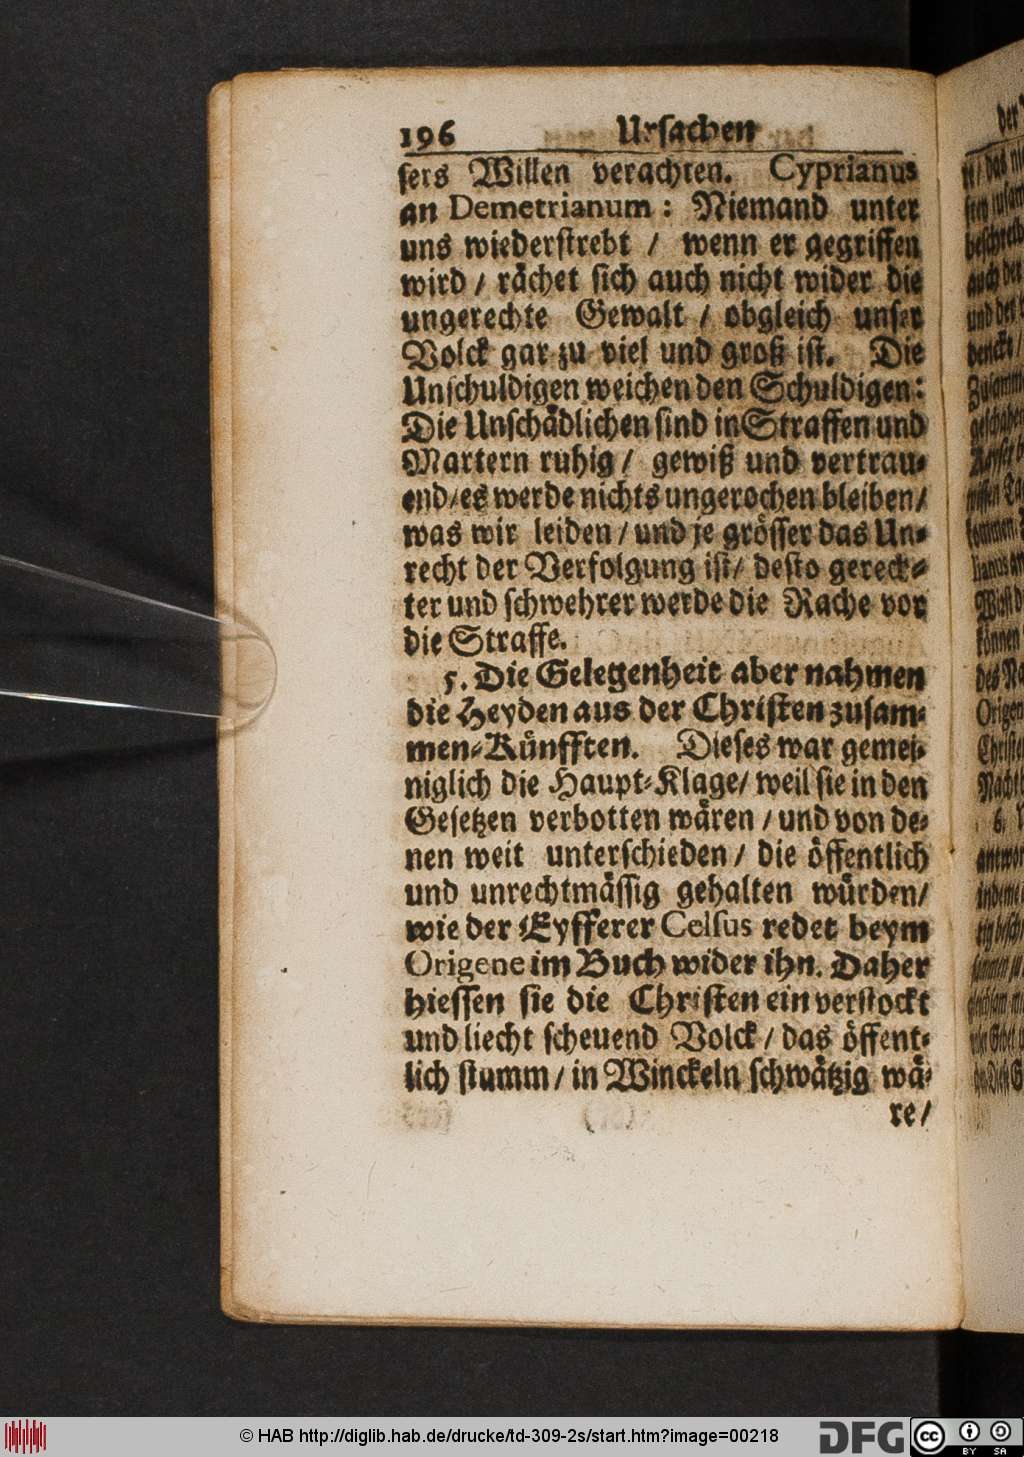 196 Ursachen
sers Willen verachten. Cyprianus
an Demetrianum: Niemand unter
uns wiederstrebt / wenn er gegriffen
wird / rächet sich auch nicht wider die
ungerechte Gewalt / obgleich unser
Volck gar zu viel und groß ist. Die
Unschuldigen weichen den Schuldigen:
Die Unschädlichen sind in Straffen und
Martern ruhig / gewiß und vertrau-
end / es werde nichts ungerochen bleiben /
was wir leiden / und je grösser das Un-
recht der Verfolgung ist / desto gereck-
ter und schwehrer werde die Rache vor
die Straffe.
5. Die Gelegenheit aber nahmen
die Heyden aus der Christen zusam-
men-Künfften. Dieses war gemei-
niglich die Haupt-Klage / weil sie in den
Gesetzen verbotten wären / und von de-
nen weit unterschieden / die öffentlich
und unrechtmässig gehalten würden /
wie der Eyfferer Celsus redet beym
Origene im Buch wider ihn. Daher
hiessen sie die Christen ein verstockt
und liecht scheuend Volck / das öffent-
lich stumm / in Winckeln schwätzig wä-
re /
der
6.
© HAB http://diglib.hab.de/drucke/td-309-2s/start.htm?image=00218
DFG
cc
BY SA